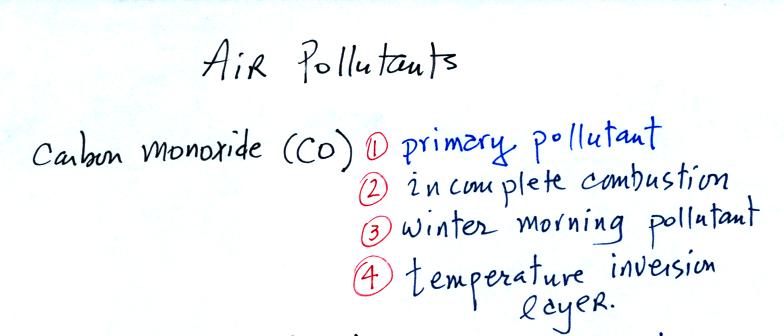 Air Pollutants
Carbon monoxide (CO) ① primary pollutant
② incomplete combustion
③ winter morning pollutant
④ temperature inversion
layer.